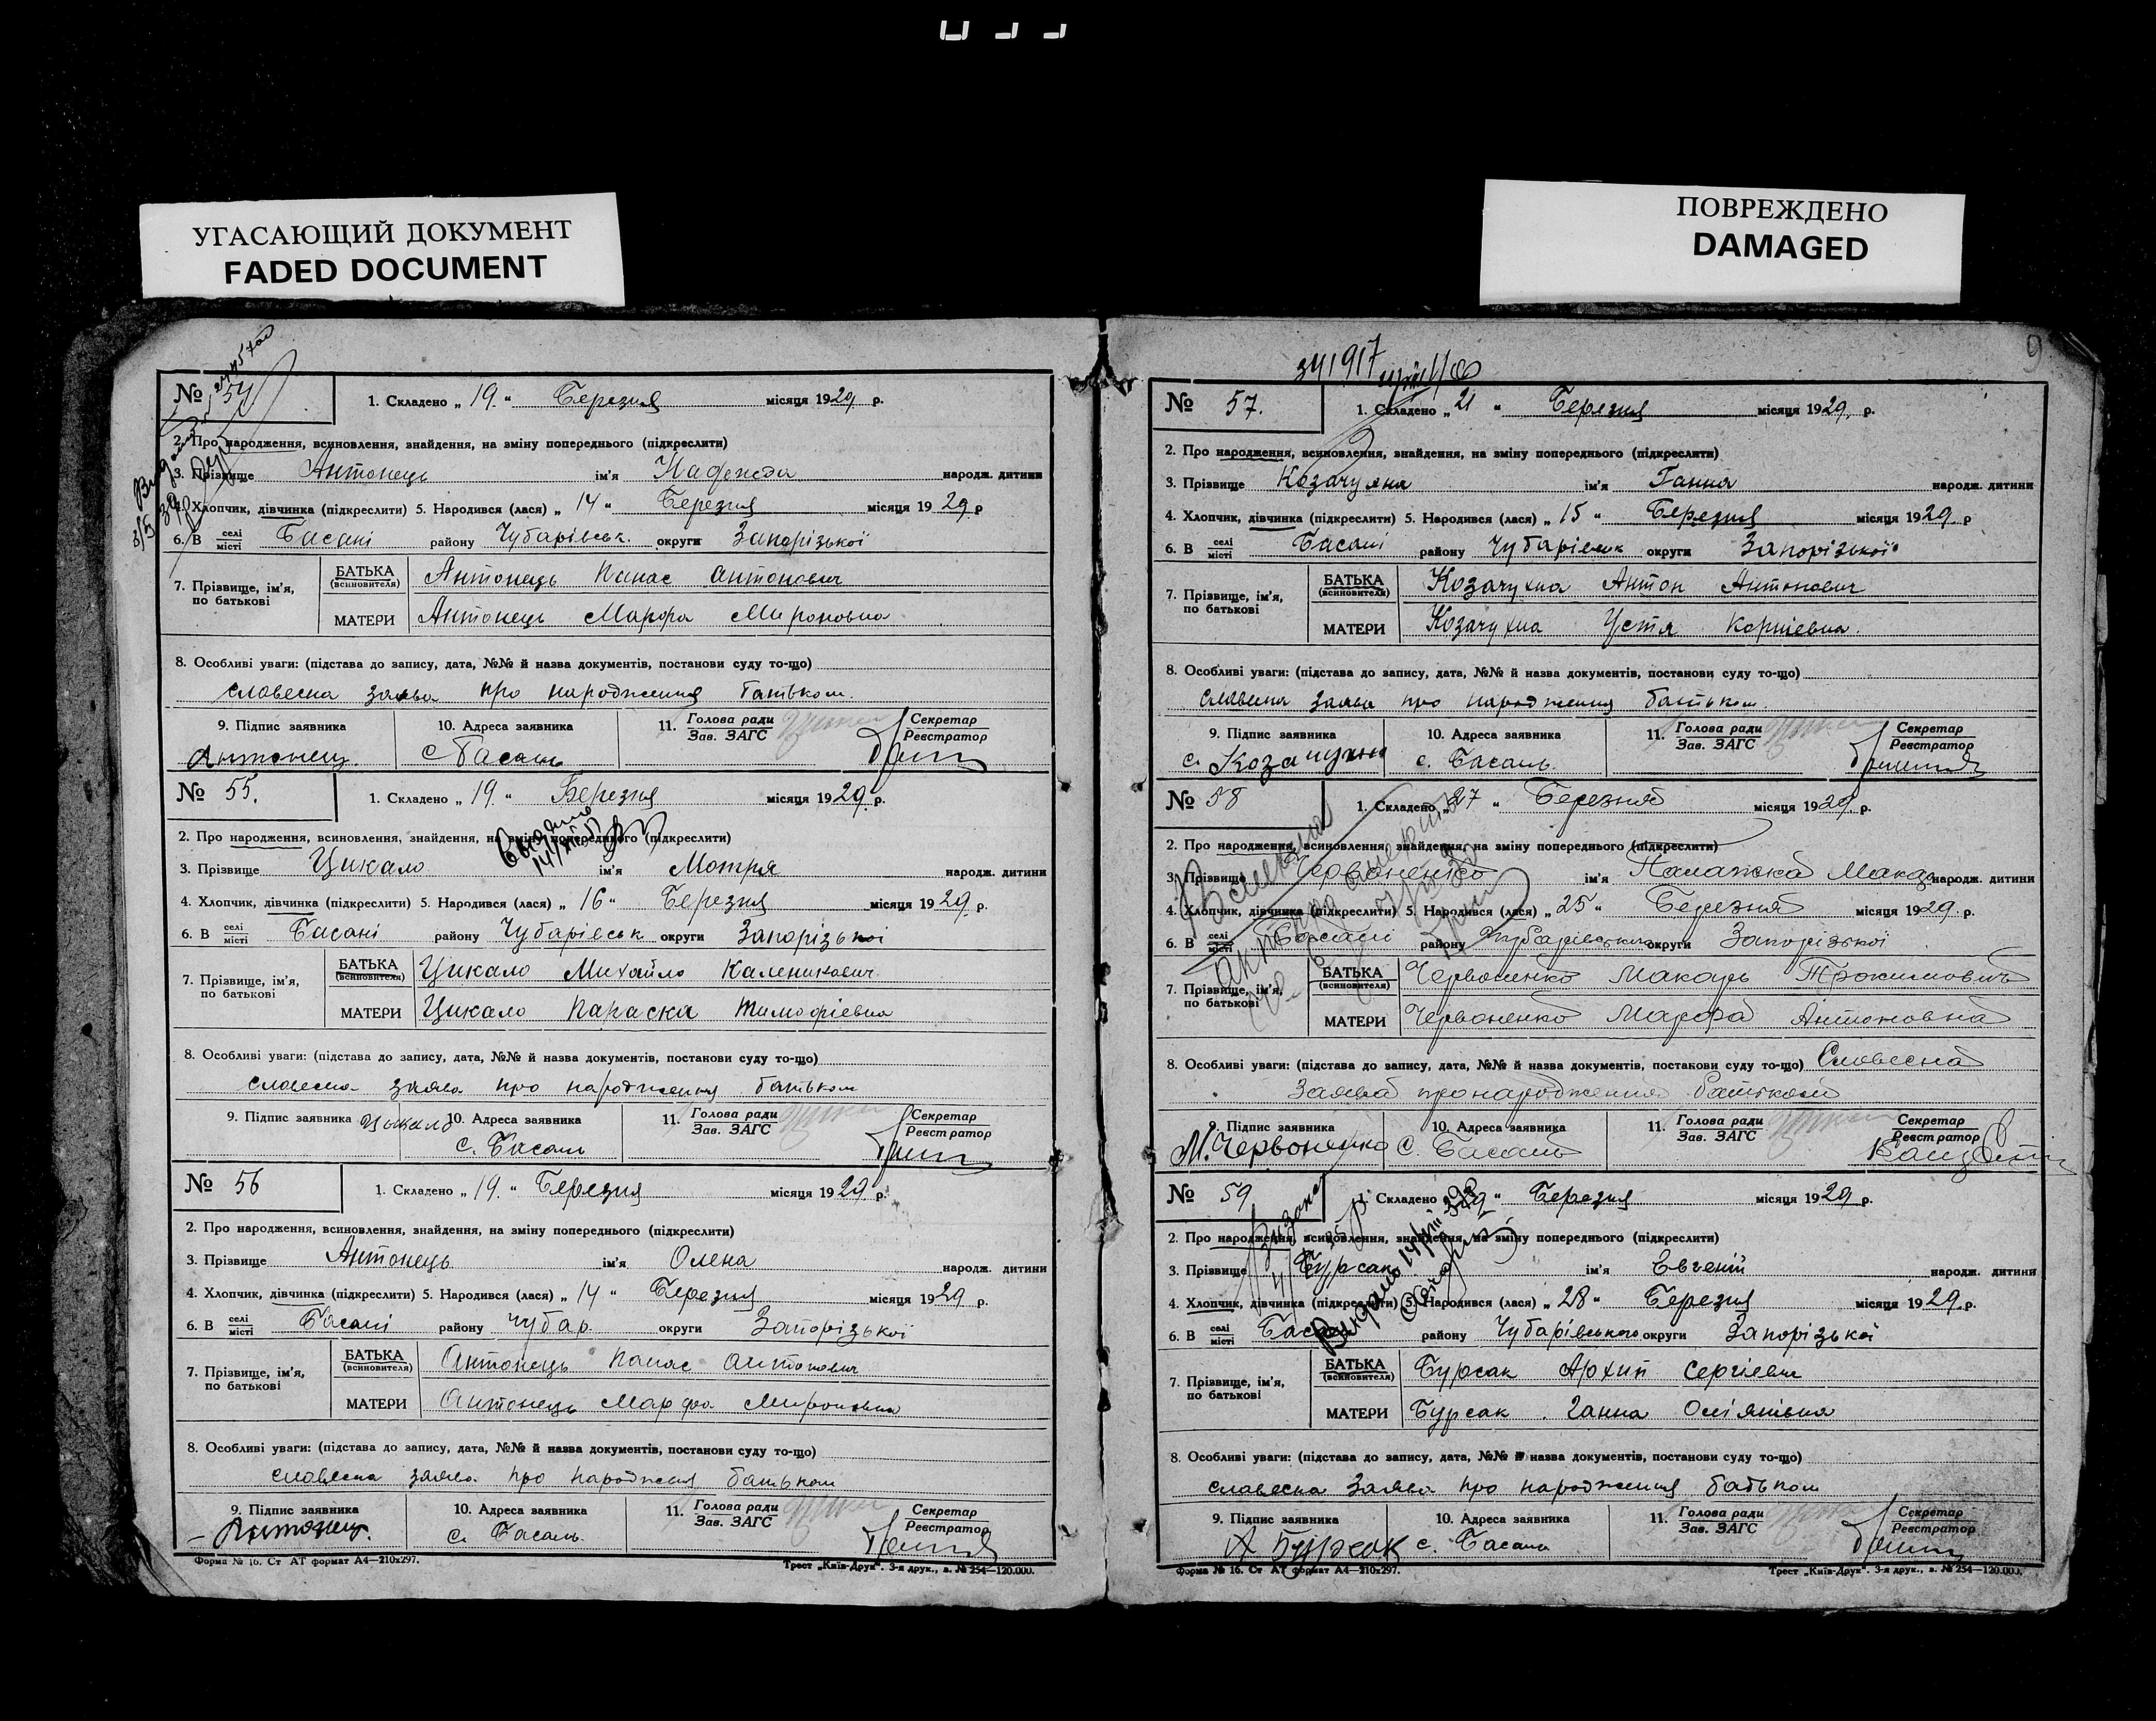 УГАСАЮЩИЙ ДОКУМЕНТ
FADED DOCUMENT
ПОВРЕЖДЕНО
DAMAGED
№ 54
1. Складено „ 19 “ Березня місяця 1929 р.
2. Про народження, всиновлення, знайдення, на зміну попереднього (підкреслити)
3. Прізвище Антонець ім'я Надежда народж. дитини
4. Хлопчик, дівчинка (підкреслити) 5. Народився (лася) „ 14 “ Березня місяця 1929 р
6. В селі місті Басані району Чубарівськ. округи Запорізької
7. Прізвище, ім'я, по батькові
БАТЬКА (всиновителя) Антонець Панас Антонович
МАТЕРИ Антонець Марфа Мироновна
8. Особливі уваги: (підстава до запису, дата, №№ й назва документів, постанови суду то-що)
словесна заява про народження батьком.
9. Підпис заявника 10. Адреса заявника 11. Голова ради Зав. ЗАГС Секретар Реєстратор
Антонец. с Басань
№ 55.
1. Складено „ 19 “ Березня місяця 1929 р.
2. Про народження, всиновлення, знайдення, на зміну попереднього (підкреслити)
3. Прізвище Цикало ім'я Мотря народж. дитини
4. Хлопчик, дівчинка (підкреслити) 5. Народився (лася) „ 16 “ Березня місяця 1929 р.
6. В селі місті Басані району Чубарівськ округи Запорізької
7. Прізвище, ім'я, по батькові
БАТЬКА (всиновителя) Цикало Михайло Каленикович
МАТЕРИ Цикало Параска Тимофіевна
8. Особливі уваги: (підстава до запису, дата, №№ й назва документів, постанови суду то-що)
словесна заява про народження батьком
9. Підпис заявника Цыкало 10. Адреса заявника 11. Голова ради Зав. ЗАГС Секретар Реєстратор
с. Басань
№ 56
1. Складено „ 19 “ Березня місяця 1929 р.
2. Про народження, всиновлення, знайдення, на зміну попереднього (підкреслити)
3. Прізвище Антонець ім'я Олена народж. дитини
4. Хлопчик, дівчинка (підкреслити) 5. Народився (лася) „ 14 “ Березня місяця 1929 р.
6. В селі місті Басані району Чубар. округи Запорізької
7. Прізвище, ім'я, по батькові
БАТЬКА (всиновителя) Антонець Панас Антонович
МАТЕРИ Антонець Марфа Мироновна
8. Особливі уваги: (підстава до запису, дата, №№ й назва документів, постанови суду то-що)
словесна заява про народження батьком
9. Підпис заявника 10. Адреса заявника 11. Голова ради Зав. ЗАГС Секретар Реєстратор
Антонец. с. Басань
Форма № 16. Ст АТ формат А4—210х297. Трест „Київ-Друк“. 3-я друк., в. № 254—120.000.
9
341917
№ 57.
1. Складено „ 21 “ Березня місяця 1929 р.
2. Про народження, всиновлення, знайдення, на зміну попереднього (підкреслити)
3. Прізвище Козачухна ім'я Ганна народж. дитини
4. Хлопчик, дівчинка (підкреслити) 5. Народився (лася) „ 15 “ Березня місяця 1929 р
6. В селі місті Басані району Чубарівськ округи Запорізької
7. Прізвище, ім'я, по батькові
БАТЬКА (всиновителя) Козачухна Антон Антонович
МАТЕРИ Козачухна Устя Корніевна.
8. Особливі уваги: (підстава до запису, дата, №№ й назва документів, постанови суду то-що)
словесна заява про народження батьком
9. Підпис заявника 10. Адреса заявника 11. Голова ради Зав. ЗАГС Секретар Реєстратор
с. Басань.
№ 58
1. Складено „ 27 “ Березня місяця 1929 р.
2. Про народження, всиновлення, знайдення, на зміну попереднього (підкреслити)
3. Прізвище Червоненко ім'я Палажка народж. дитини
4. Хлопчик, дівчинка (підкреслити) 5. Народився (лася) „ 25 “ Березня місяця 1929 р.
6. В селі місті Басані району Чубарівського округи Запорізької
7. Прізвище, ім'я, по батькові
БАТЬКА (всиновителя) Червоненко Макарь Трохимовичь
МАТЕРИ Червоненко Марфа Антоновна
8. Особливі уваги: (підстава до запису, дата, №№ й назва документів, постанови суду то-що) Словесна
Заява про народження батьком
9. Підпис заявника 10. Адреса заявника 11. Голова ради Зав. ЗАГС Секретар Реєстратор
М. Червоненко с. Басань
№ 59
1. Складено „ 29 “ Березня місяця 1929 р.
2. Про народження, всиновлення, знайдення, на зміну попереднього (підкреслити)
3. Прізвище Бурсак ім'я Евгеній народж. дитини
4. Хлопчик, дівчинка (підкреслити) 5. Народився (лася) „ 28 “ Березня місяця 1929 р.
6. В селі місті Басані району Чубарівського округи Запорізької
7. Прізвище, ім'я, по батькові
БАТЬКА (всиновителя) Бурсак Архип Сергіевич
МАТЕРИ Бурсак Ганна
8. Особливі уваги: (підстава до запису, дата, №№ й назва документів, постанови суду то-що)
словесна заява про народження батьком
9. Підпис заявника 10. Адреса заявника 11. Голова ради Зав. ЗАГС Секретар Реєстратор
А Бурсак с. Басань
Форма № 16. Ст АТ формат А4—210х297. Трест „Київ-Друк“. 3-я друк., в. № 254—120.000.